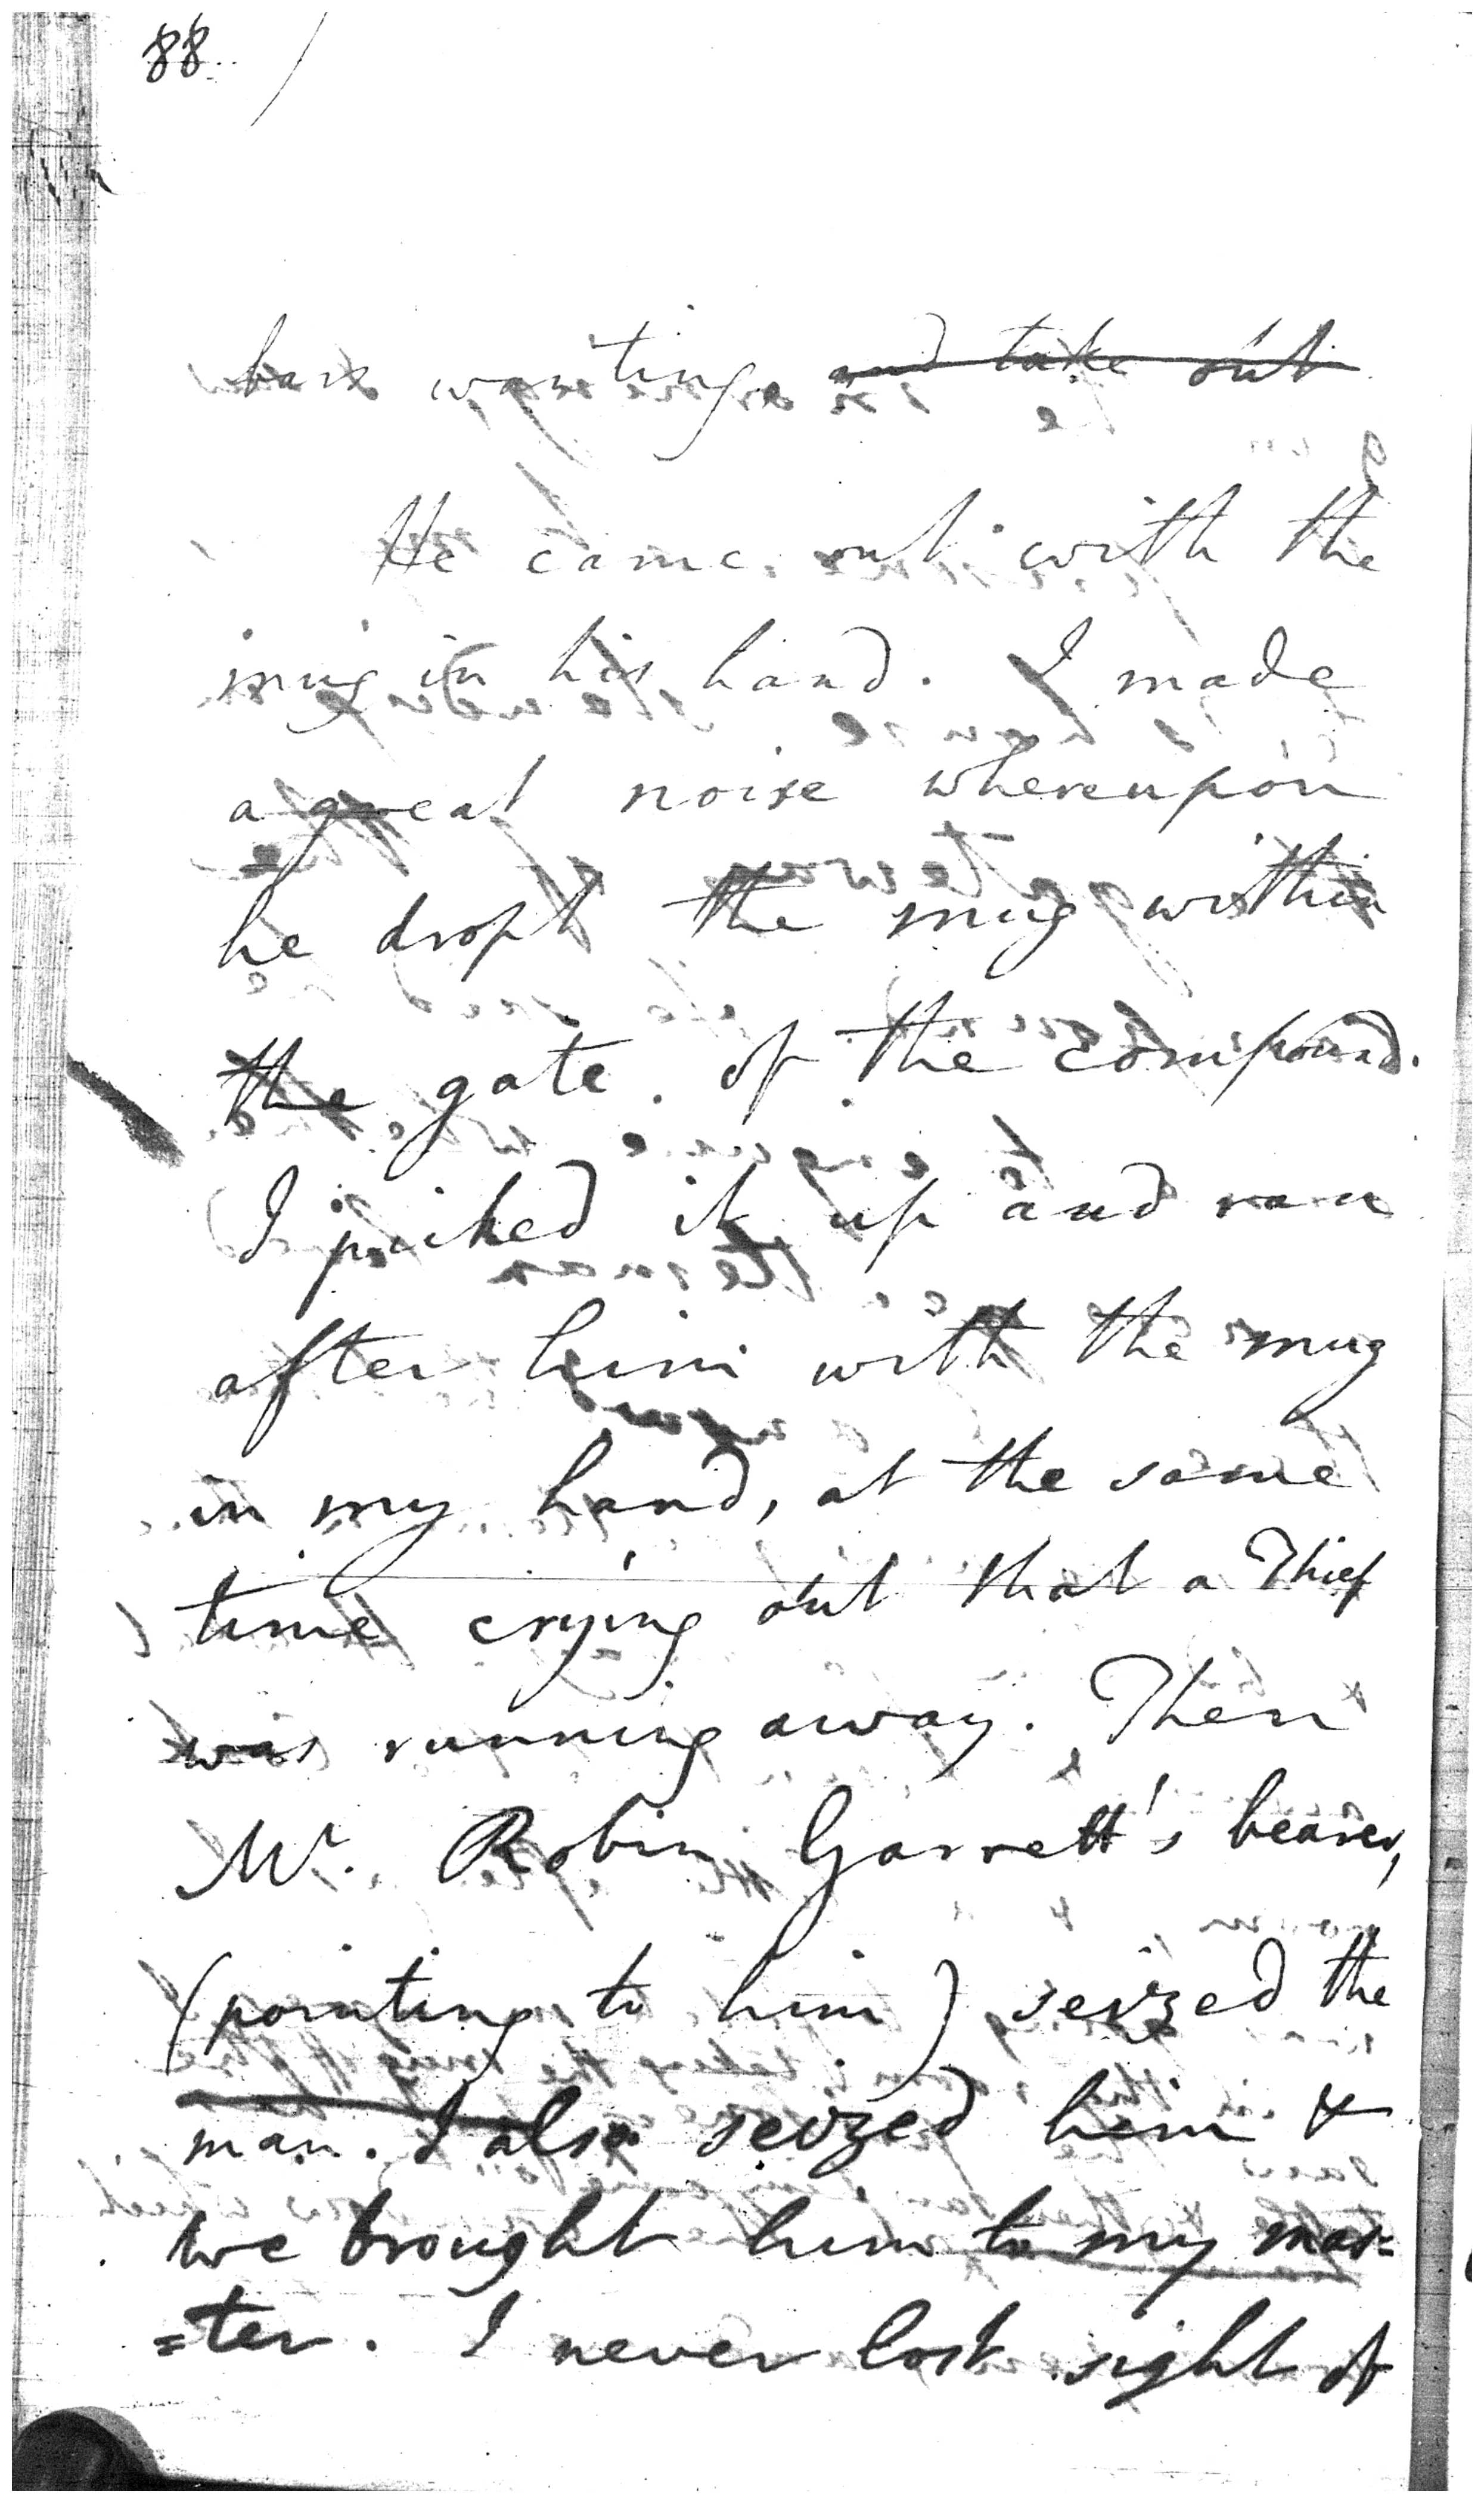 88.
bars wanting. ~~and take out~~
He came out with the
mug in his hand. I made
a great noise whereupon
he dropt the mug within
the gate of the compound.
I picked it up and ran
after him with the mug
in my hand, at the same
time crying out that a Thief
was running away. Then
Mr. Robin Garrett's bearer,
(pointing to him) seized the
man. I also seized him &
we brought him to my mas-
=ter. I never lost sight of